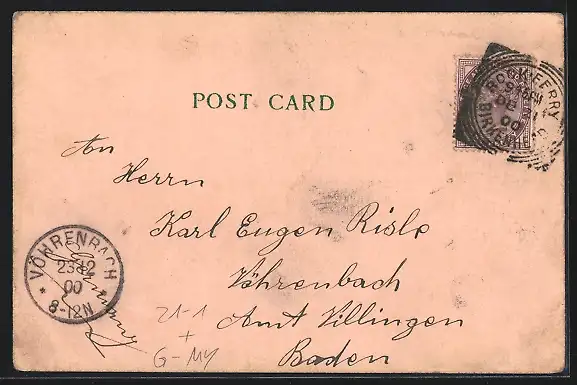 POST CARD
ROCK FERRY
DE
00
BIRKENHEAD
An
Herrn
Karl Eugen Risle
Vöhrenbach
Amt Villingen
Baden
Germany
VÖHRENBACH
23 12
00
* 8-12N
21-1
+
G-MY